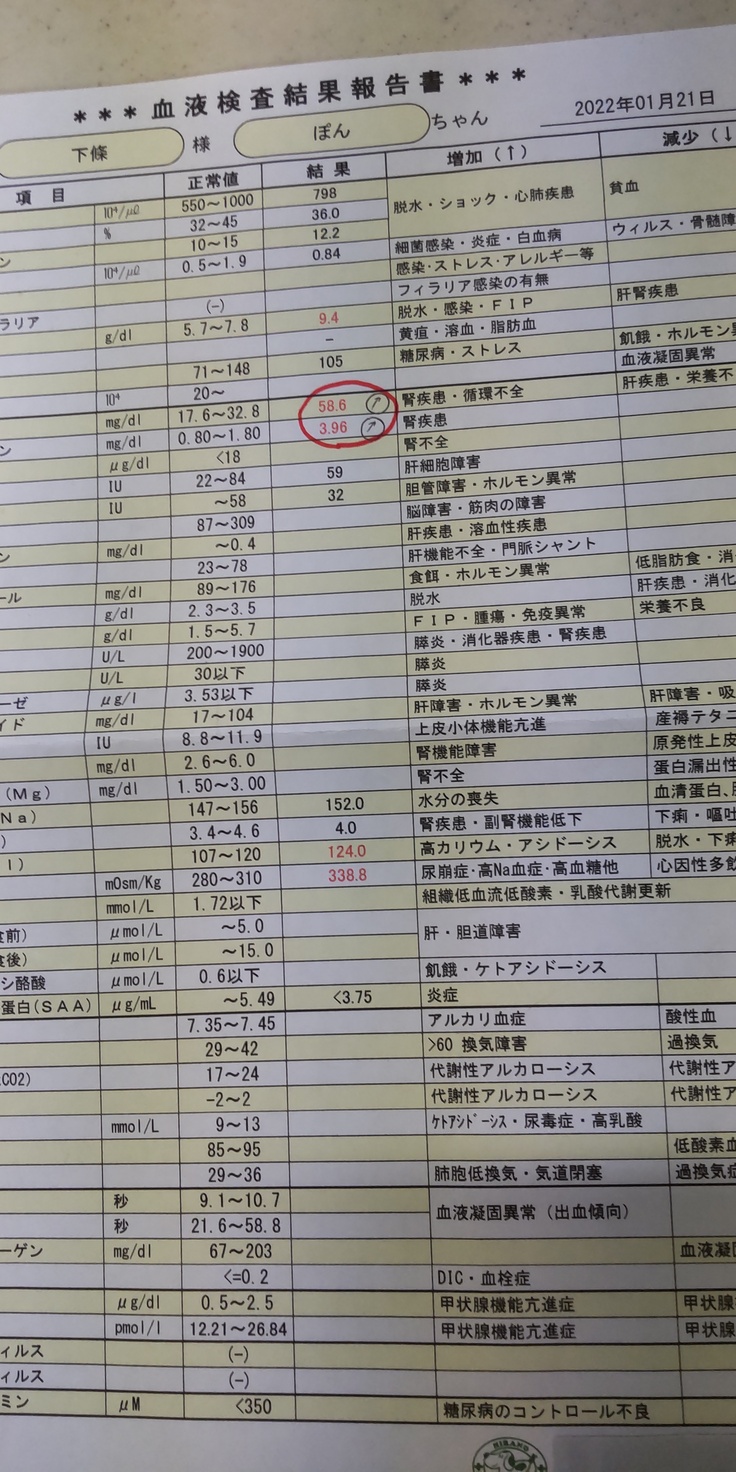 ＊＊＊血液検査結果報告書＊＊＊
下條 様 ぽん ちゃん 2022年01月21日
項 目 正常値 結 果 増加(↑) 減少(↓
10⁴/μℓ 550～1000 798 脱水・ショック・心肺疾患 貧血
% 32～45 36.0
ン 10～15 12.2
10⁴/μℓ 0.5～1.9 0.84 細菌感染・炎症・白血病 ウィルス・骨髄障
感染・ストレス・アレルギー等
ラリア (-) フィラリア感染の有無
g/dl 5.7～7.8 9.4 脱水・感染・ＦＩＰ 肝腎疾患
- 黄疸・溶血・脂肪血
71～148 105 糖尿病・ストレス 飢餓・ホルモン
10⁴ 20～ 血液凝固異常
mg/dl 17.6～32.8 58.6 ↗ 腎疾患・循環不全 肝疾患・栄養不
ン mg/dl 0.80～1.80 3.96 ↗ 腎疾患
μg/dl <18 腎不全
IU 22～84 59 肝細胞障害
IU ～58 32 胆管障害・ホルモン異常
87～309 脳障害・筋肉の障害
ン mg/dl ～0.4 肝疾患・溶血性疾患
23～78 肝機能不全・門脈シャント
ール mg/dl 89～176 食餌・ホルモン異常 低脂肪食・消
g/dl 2.3～3.5 脱水 肝疾患・消化
g/dl 1.5～5.7 ＦＩＰ・腫瘍・免疫異常 栄養不良
U/L 200～1900 膵炎・消化器疾患・腎疾患
U/L 30以下 膵炎
ーゼ μg/l 3.53以下 膵炎
イド mg/dl 17～104 肝障害・ホルモン異常 肝障害・吸
IU 8.8～11.9 上皮小体機能亢進 産褥テタニ
mg/dl 2.6～6.0 腎機能障害 原発性上皮
(Mg) mg/dl 1.50～3.00 腎不全 蛋白漏出性
Na) 147～156 152.0 水分の喪失 血清蛋白、
) 3.4～4.6 4.0 腎疾患・副腎機能低下 下痢・嘔吐
l) 107～120 124.0 高カリウム・アシドーシス 脱水・下痢
mOsm/Kg 280～310 338.8 尿崩症・高Na血症・高血糖他 心因性多飲
mmol/L 1.72以下 組織低血流低酸素・乳酸代謝更新
食前) μmol/L ～5.0 肝・胆道障害
食後) μmol/L ～15.0
シ酪酸 μmol/L 0.6以下 飢餓・ケトアシドーシス
蛋白(SAA) μg/mL ～5.49 <3.75 炎症
7.35～7.45 アルカリ血症 酸性血
29～42 >60 換気障害 過換気
CO2) 17～24 代謝性アルカローシス 代謝性ア
-2～2 代謝性アルカローシス 代謝性ア
mmol/L 9～13 ｹﾄｱｼﾄﾞｰｼｽ・尿毒症・高乳酸
85～95 低酸素血
29～36 肺胞低換気・気道閉塞 過換気症
秒 9.1～10.7 血液凝固異常（出血傾向）
秒 21.6～58.8
ーゲン mg/dl 67～203 血液凝固
<=0.2 DIC・血栓症
μg/dl 0.5～2.5 甲状腺機能亢進症 甲状腺
pmol/l 12.21～26.84 甲状腺機能亢進症 甲状腺
ィルス (-)
ィルス (-)
ミン μM <350 糖尿病のコントロール不良
HIRANO